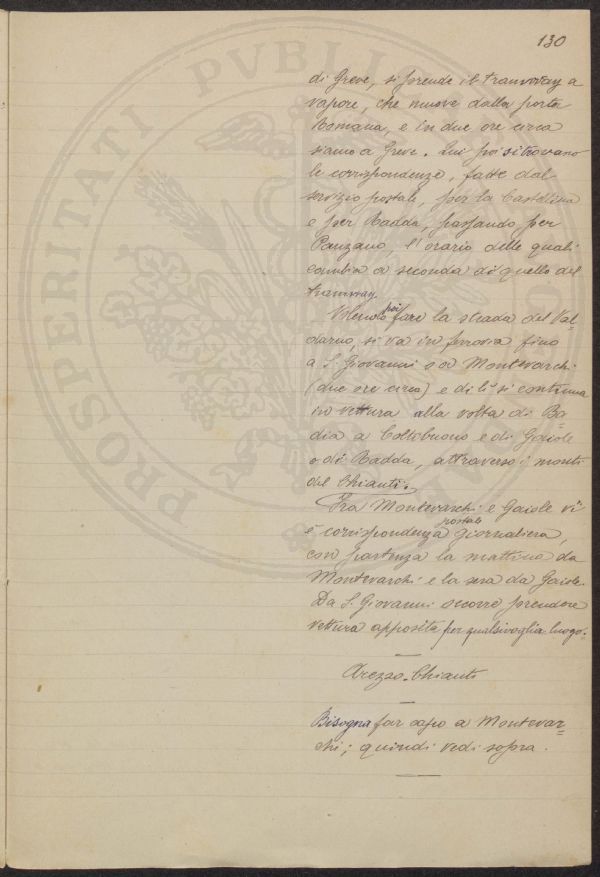 130
di Greve, si prende il tramway a
vapore, che muove dalla porta
Romana, e in due ore circa
siamo a Greve. Qui poi si trovano
le corrispondenze, fatte dal
servizio postale, per la Castellina
e per Radda, passando per
Panzano, l'orario delle quali
cambia a seconda di quello del
tramway.
Volendo poi fare la strada del Val=
darno, si va in ferrovia fino
a S. Giovanni o a Montevarchi
(due ore circa) e di lì si continua
in vettura alla volta di Ba=
dia a Coltebuono e di Gaiole
o di Radda, attraverso i monti
del Chianti.
Fra Montevarchi e Gaiole vi
è corrispondenza postale giornaliera,
con partenza la mattina da
Montevarchi e la sera da Gaiole.
Da S. Giovanni occorre prendere
vettura apposita per qualsivoglia luogo.
Arezzo-Chianti
Bisogna far capo a Montevar=
chi; quindi vedi sopra.
PROSPERITATI PVBLICAE